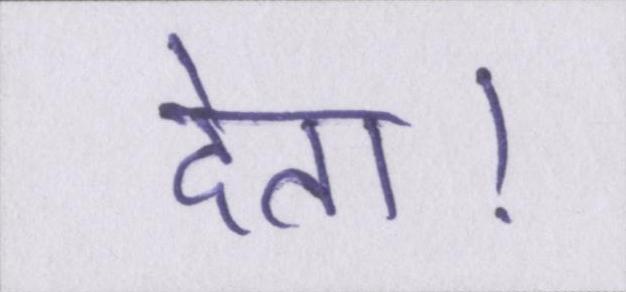 देता!